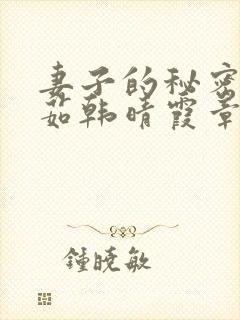 妻子的秘密
茹韩晴霞章
鍾曉敏